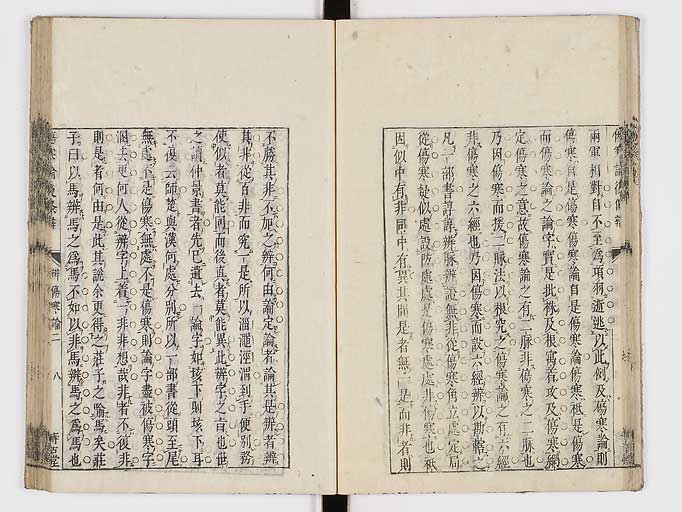 兩軍相對自不至為項羽逝逃以此例及傷寒論則
傷寒自是傷寒論自是傷寒論傷寒祗是傷寒
而傷寒論之論字實是批根及根窩着攻及傷寒經
定傷寒之意故傷寒論之有二脈非傷寒之二脈也
乃因傷寒而援二脈法以根究之傷寒論之有六經
非傷寒之六經也乃因傷寒而設六經辨以勘轄之
凡一部書諄諄辨脈辨證無非從傷寒角立處定局
從傷寒疑似處設防處處是傷寒處處非傷寒也祇
因似中有非同中有異其同是者無一是而非者則
不勝其非不加之辨何由論定論者論其是辨者辨
其非從百非而究一是所以淄澠涇渭到手便別務
使似者莫能同而後真者莫能異此辨字之旨也世
之讀仲景書者先已遺去一論字如垓下則垓下耳
不復云師楚與漢何處分別所以一部書從頭至尾
無處不是傷寒無處不是傷寒則論字盡被傷寒字
涸去更何人從辨字上着一非非想哉非者不彼非
則是者何由是此其說余更得之莊子之喻馬矣莊
子曰以馬辨馬之為馬不如以非馬辨馬之為馬也
辨傷寒論二
八